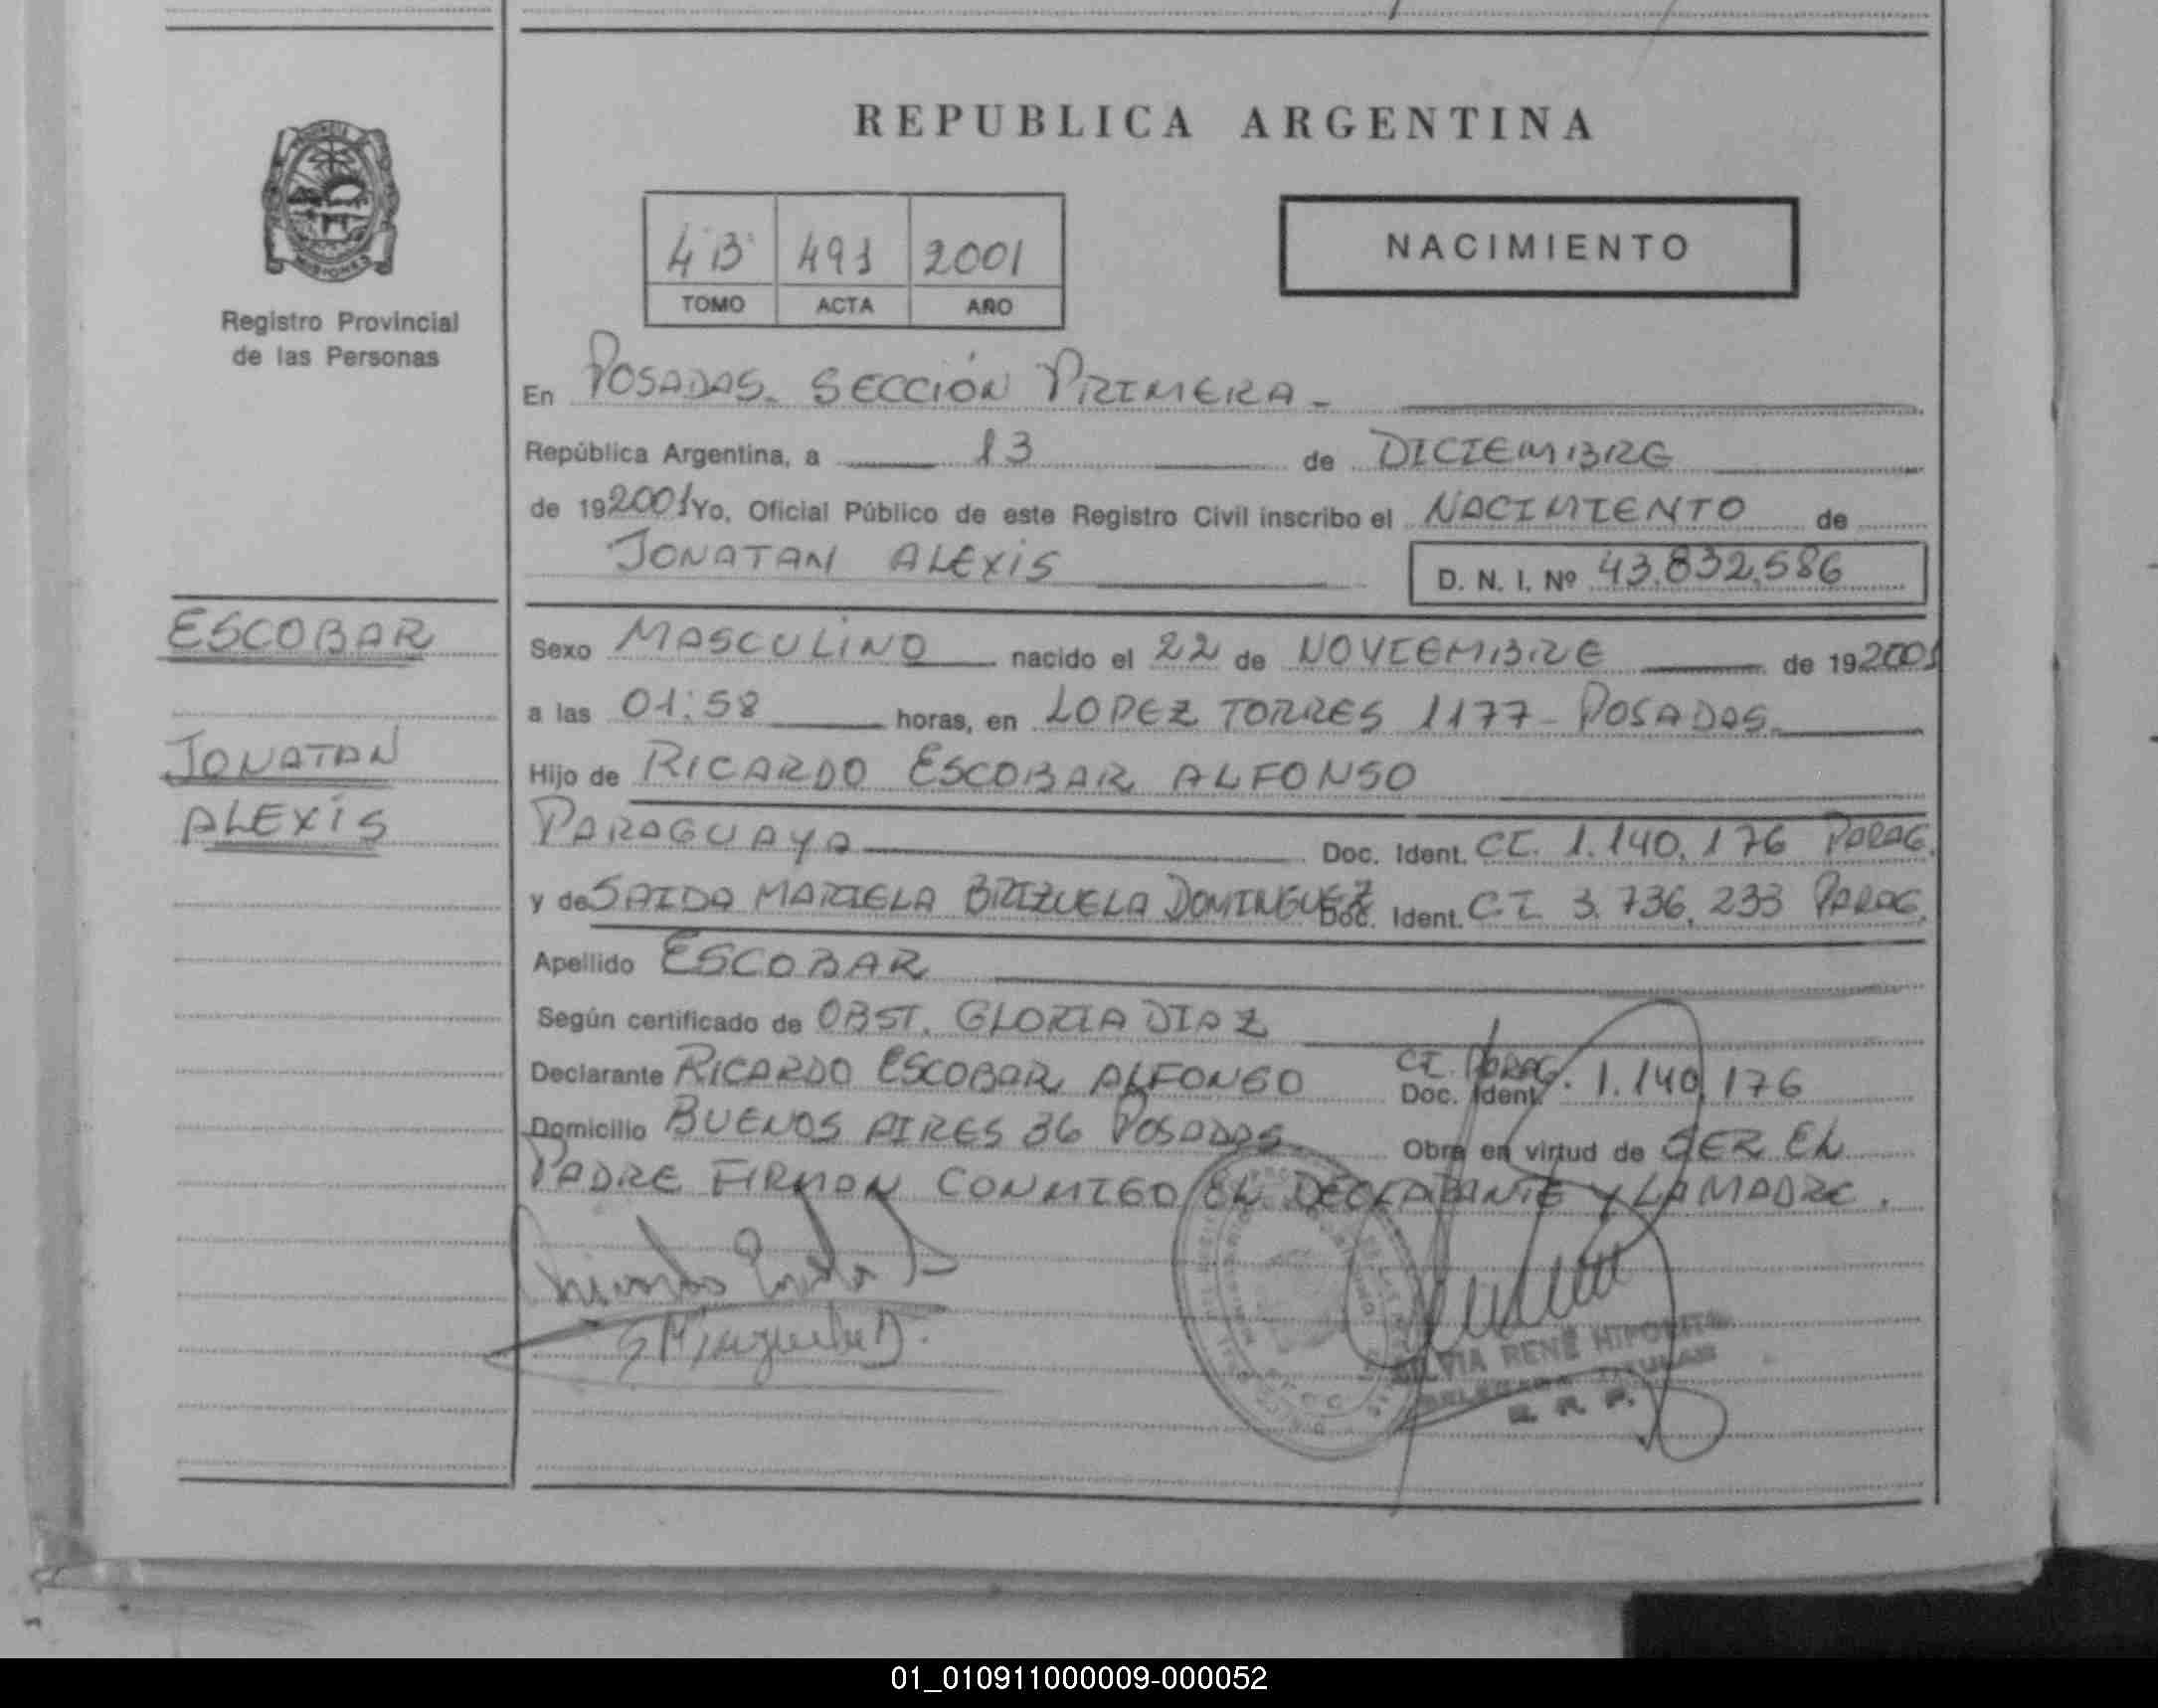 REPUBLICA ARGENTINA
MISIONES
Registro Provincial
de las Personas
4 B 491 2001
TOMO ACTA AÑO
NACIMIENTO
En POSADAS. SECCIÓN PRIMERA.-
República Argentina, a 13 de DICIEMBRE
de 192001 Yo, Oficial Público de este Registro Civil inscribo el NACIMIENTO de
JONATAN ALEXIS D. N. I. Nº 43.832.586
ESCOBAR
JONATAN
ALEXIS
Sexo MASCULINO nacido el 22 de NOVIEMBRE de 192001
a las 01:58 horas, en LOPEZ TORRES 1177 - POSADAS.
Hijo de RICARDO ESCOBAR ALFONSO
PARAGUAYA Doc. Ident. CI. 1.140.176 PARAG.
y de SAIDA MARIELA BRIZUELA DOMINGUEZ Doc. Ident. C.I. 3.736.233 PARAG.
Apellido ESCOBAR
Según certificado de OBST. GLORIA DIAZ
Declarante RICARDO ESCOBAR ALFONSO CI. PARAG. Doc. Ident. 1.140.176
Domicilio BUENOS AIRES 36 POSADAS Obra en virtud de SER EL
PADRE FIRMAN CONMIGO EL DECLARANTE Y LA MADRE.
SILVIA RENÉ HIPOLITA
DELEGADA TITULAR
R. P.
01_010911000009-000052